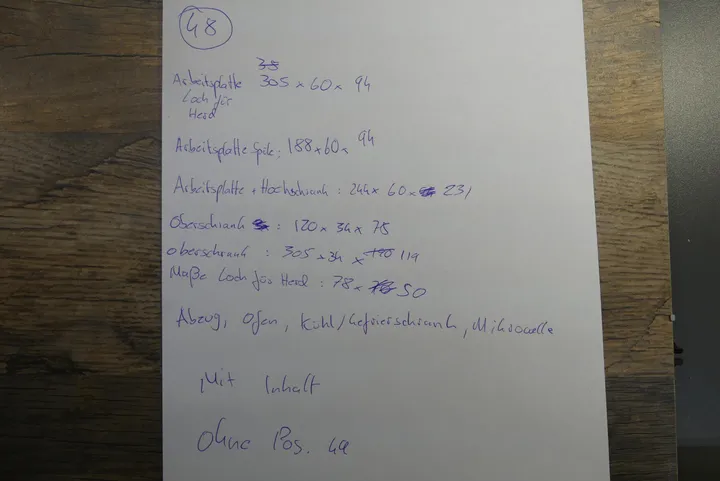 48
38
Arbeitsplatte 305 x 60 x 94
Loch für
Herd
Arbeitsplatte Spüle: 188 x 60 x 94
Arbeitsplatte + Hochschrank: 244 x 60 x 231
Oberschrank : 120 x 34 x 75
oberschrank : 305 x 34 x 119
Maße Loch für Herd : 78 x 50
Abzug, Ofen, Kühl/Gefrierschrank, Mikrowelle
Mit Inhalt
Ohne Pos. 49